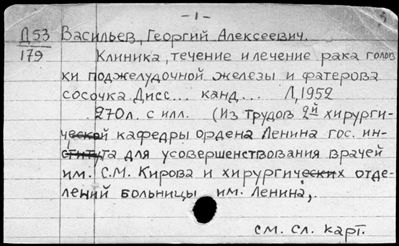 - 1 -
Д53 Васильев, Георгий Алексеевич.
179 Клиника, течение и лечение рака голов
ки поджелудочной железы и фатерова
сосочка Дисс... канд... Л, 1952
270л. с илл. (Из трудов 2й хирурги-
ческой кафедры ордена Ленина гос. ин-
ститута для усовершенствования врачей
им. С.М. Кирова и хирургических отде-
лений больницы им. Ленина,.
см. сл. карт.